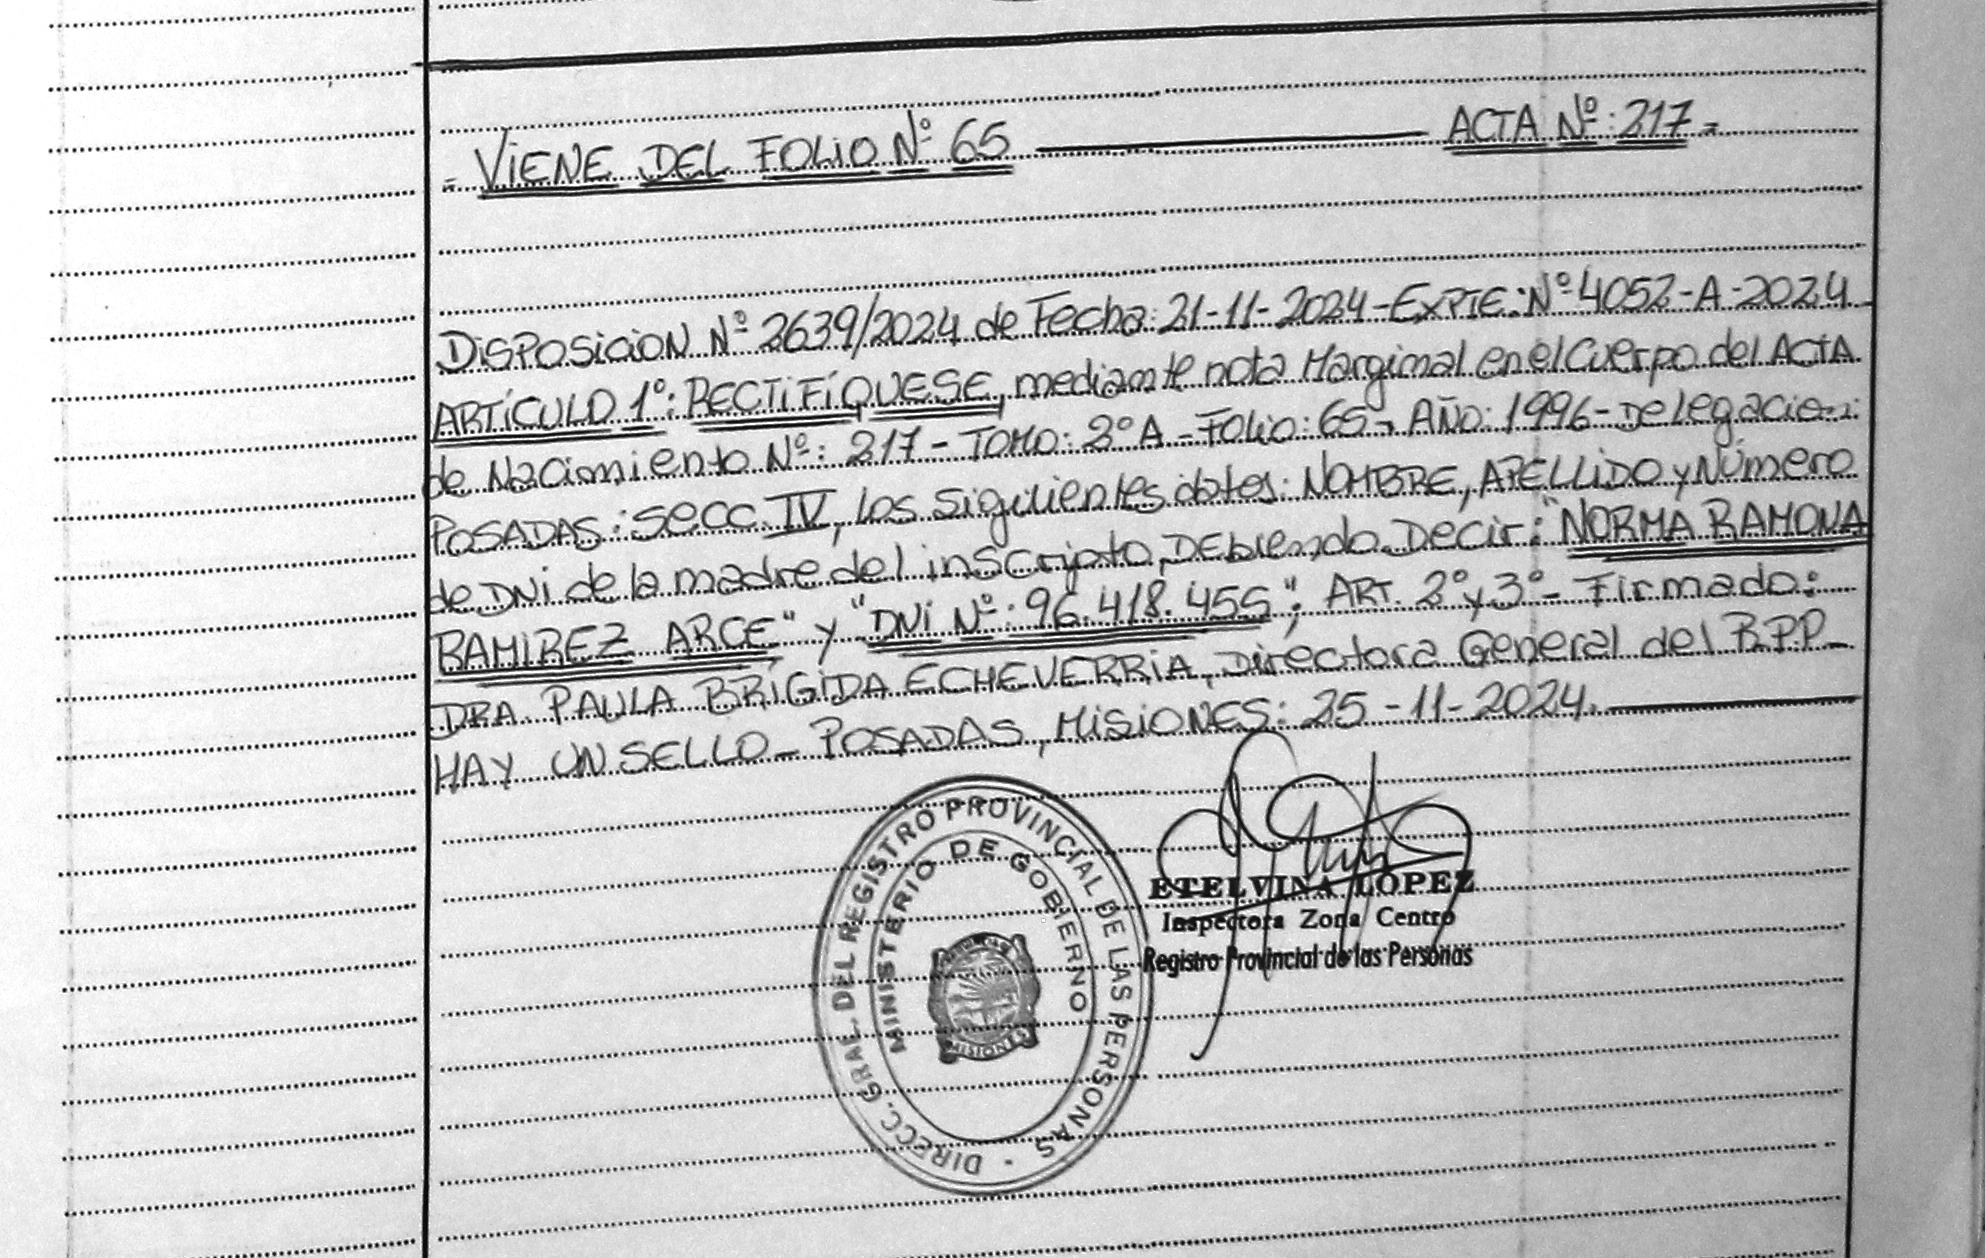 = VIENE DEL FOLIO Nº 65 ACTA Nº: 217 =
DISPOSICION Nº 2639/2024 de Fecha: 21-11-2024-EXPTE: Nº 4052-A-2024
ARTÍCULO 1º: RECTIFÍQUESE, mediante nota Marginal en el Cuerpo del ACTA
de Nacimiento Nº: 217 - TOMO: 2º A - FOLIO: 65 - AÑO: 1996 - Delegacion:
POSADAS: SECC. IV, los Siguientes datos: NOMBRE, APELLIDO y Número
de DNI de la madre del inscripto, DEBIENDO Decir: "NORMA RAMONA
RAMIREZ ARCE" y "DNI Nº: 96.418.455"; ART. 2º y 3º - Firmado:
DRA. PAULA BRÍGIDA ECHEVERRIA, Directora General del R.P.P_
HAY UN SELLO_ POSADAS, MISIONES: 25-11-2024.
DIRECC. GRAL. DEL REGISTRO PROVINCIAL DE LAS PERSONAS -
MINISTERIO DE GOBIERNO
MISIONES
ETELVINA LOPEZ
Inspectora Zona Centro
Registro Provincial de las Personas